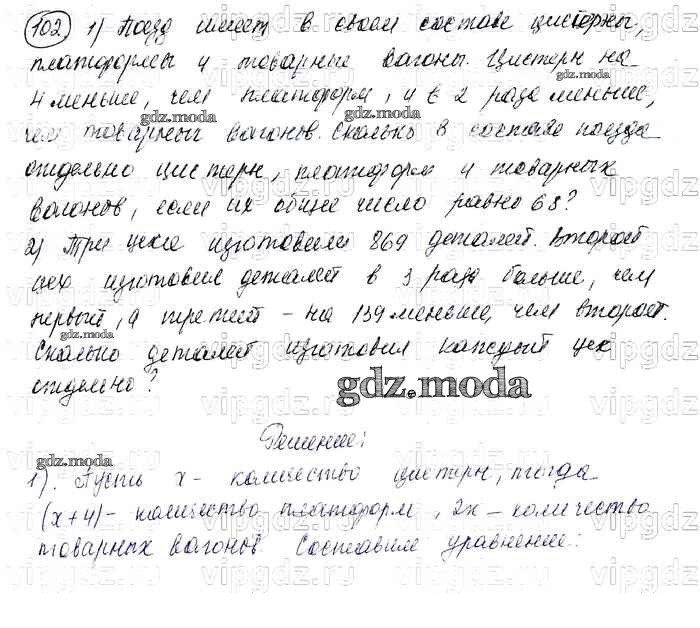 102. 1) Поезд имеет в своем составе цистерны,
платформы и товарные вагоны. Цистерн на
4 меньше, чем платформ, и в 2 раза меньше,
чем товарных вагонов. Сколько в составе поезда
отдельно цистерн, платформ и товарных
вагонов, если их общее число равно 68?
2) Три цеха изготовили 869 деталей. Второй
цех изготовил деталей в 3 раза больше, чем
первый, а третий – на 139 меньше, чем второй.
Сколько деталей изготовил каждый цех
отдельно?
gdz.moda
Решение:
1). Пусть x - количество цистерн, тогда
(x+4) - количество платформ, 2x - количество
товарных вагонов. Составим уравнение: